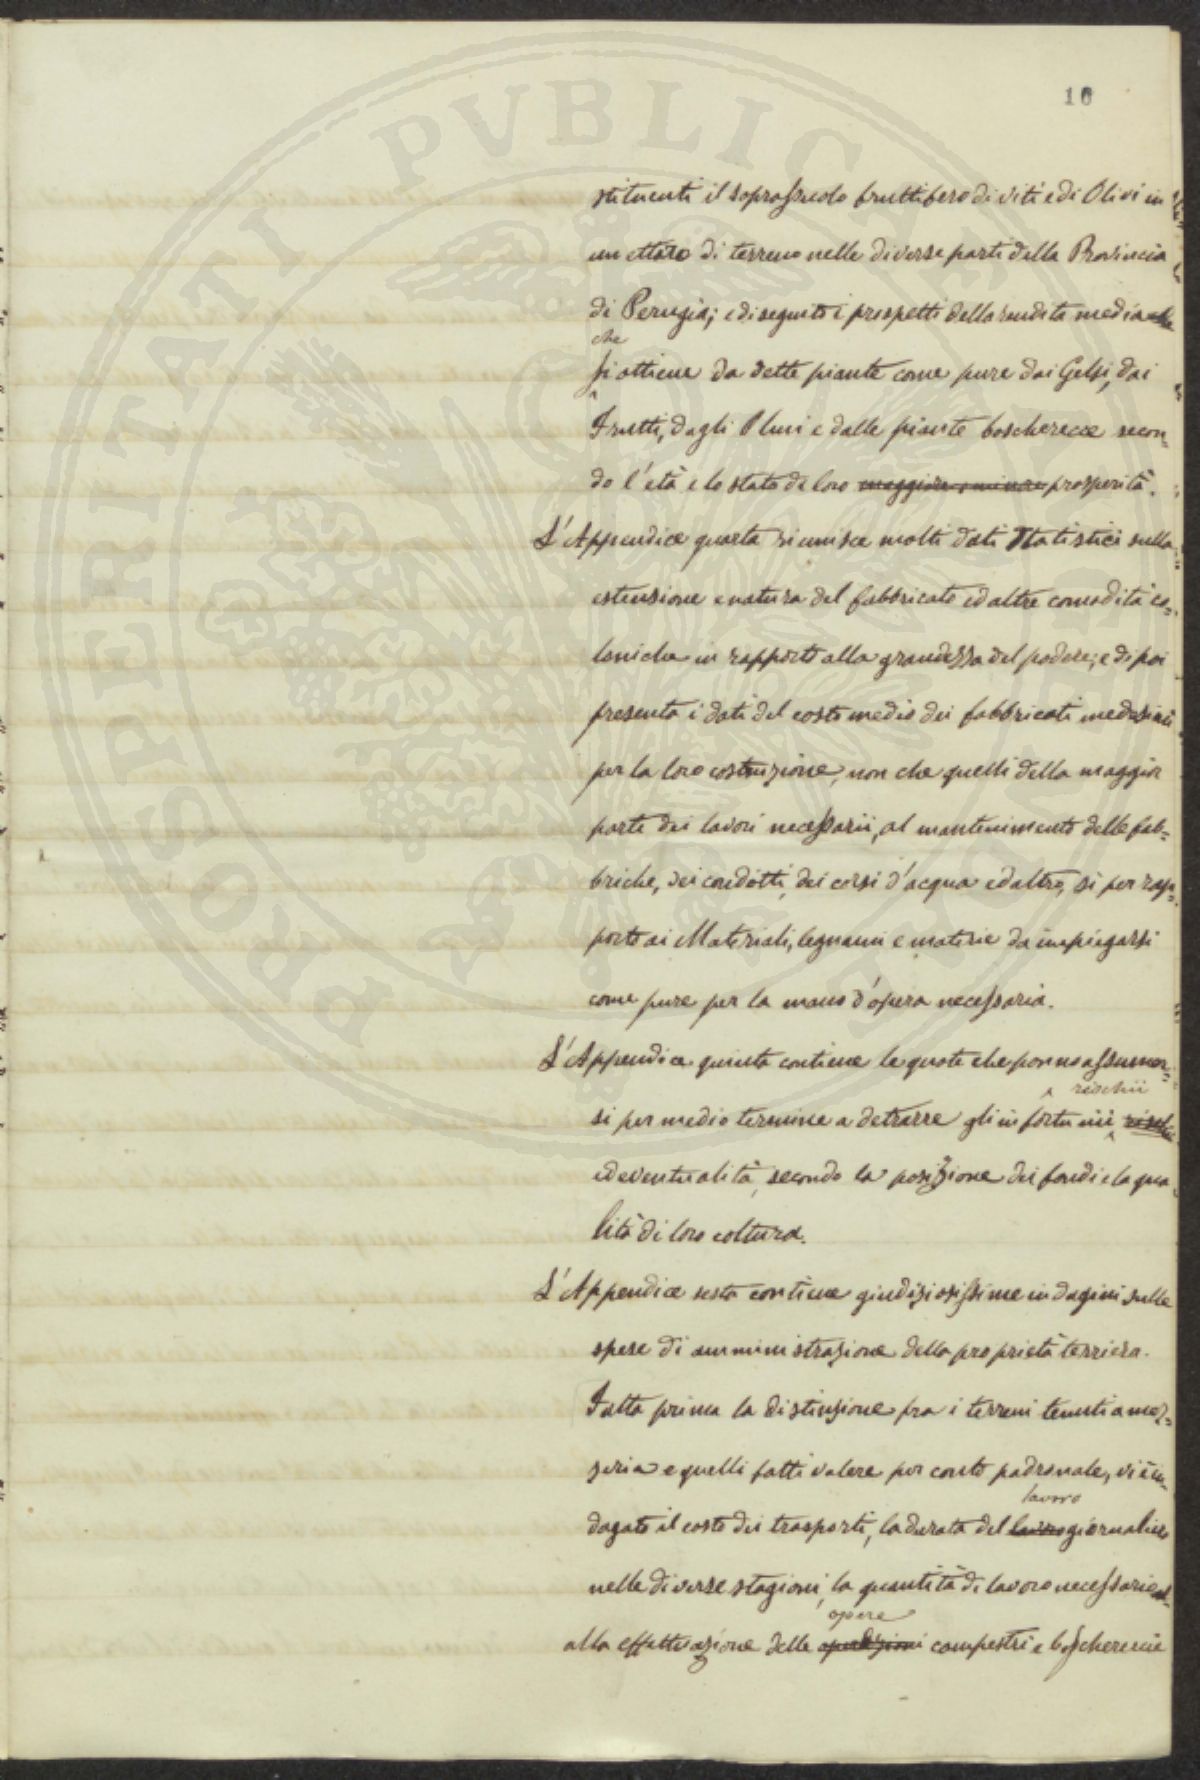 PROSPERITATI PVBLICAE AVGENDAE
10
stituenti il soprassuolo fruttifero di viti e di Olivi in
un ettaro di terreno nelle diverse parti della Provincia
di Perugia; e di seguito i prospetti della rendita media che
che
si ottiene da dette piante come pure dai Gelsi, dai
Frutti, dagli Olmi e dalle piante boscherecce secon-
do l'età e lo stato di loro maggiore o minore prosperità.
L'Appendice quarta riunisce molti dati Statistici sulla
estensione e natura del fabbricato ed altre comodità co-
loniche in rapporto alla grandezza del podere; e di poi
presenta i dati del costo medio dei fabbricati medesimi
per la loro costruzione, non che quelli della maggior
parte dei lavori necessarii, al mantenimento delle fab-
briche, dei condotti, dei corsi d'acqua ed altro, sì per rap-
porto ai Materiali, legnami e materie da impiegarsi
come pure per la mano d'opera necessaria.
L'Appendice quinta contiene le quote che ponno assumer-
rischii
si per medio termine a detrarre gli infortunii rischi
ed eventualità, secondo la posizione dei fondi e la qua-
lità di loro coltura.
L'Appendice sesta contiene giudiziosissime indagini sulle
spese di amministrazione della proprietà terriera.
Fatta prima la distinzione fra i terreni tenuti a mez-
zeria e quelli fatti valere per conto padronale, vi è in-
lavoro
dagato il costo dei trasporti, la durata del lavoro giornaliero
nelle diverse stagioni, la quantità di lavoro necessario
opere
alla effettuazione delle operazioni campestri e boscherecce